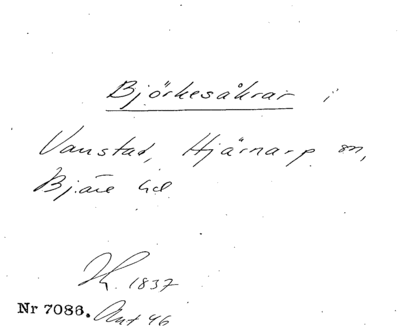 Björkesåkrar i
Vanstad, Hjärnarp sn,
Bjäre hd
1837
Nr 7086. Akt 46